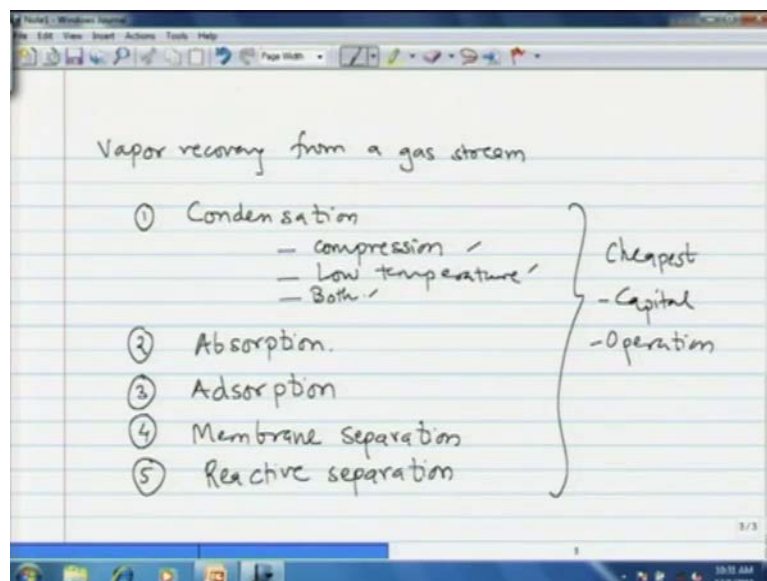 Note1 - Windows Journal
File Edit View Insert Actions Tools Help
Page Width
Vapor recovery from a gas stream
① Condensation
— compression
— Low temperature
— Both
② Absorption.
③ Adsorption
④ Membrane separation
⑤ Reactive separation
Cheapest
- Capital
- Operation
3/3
10:35 AM